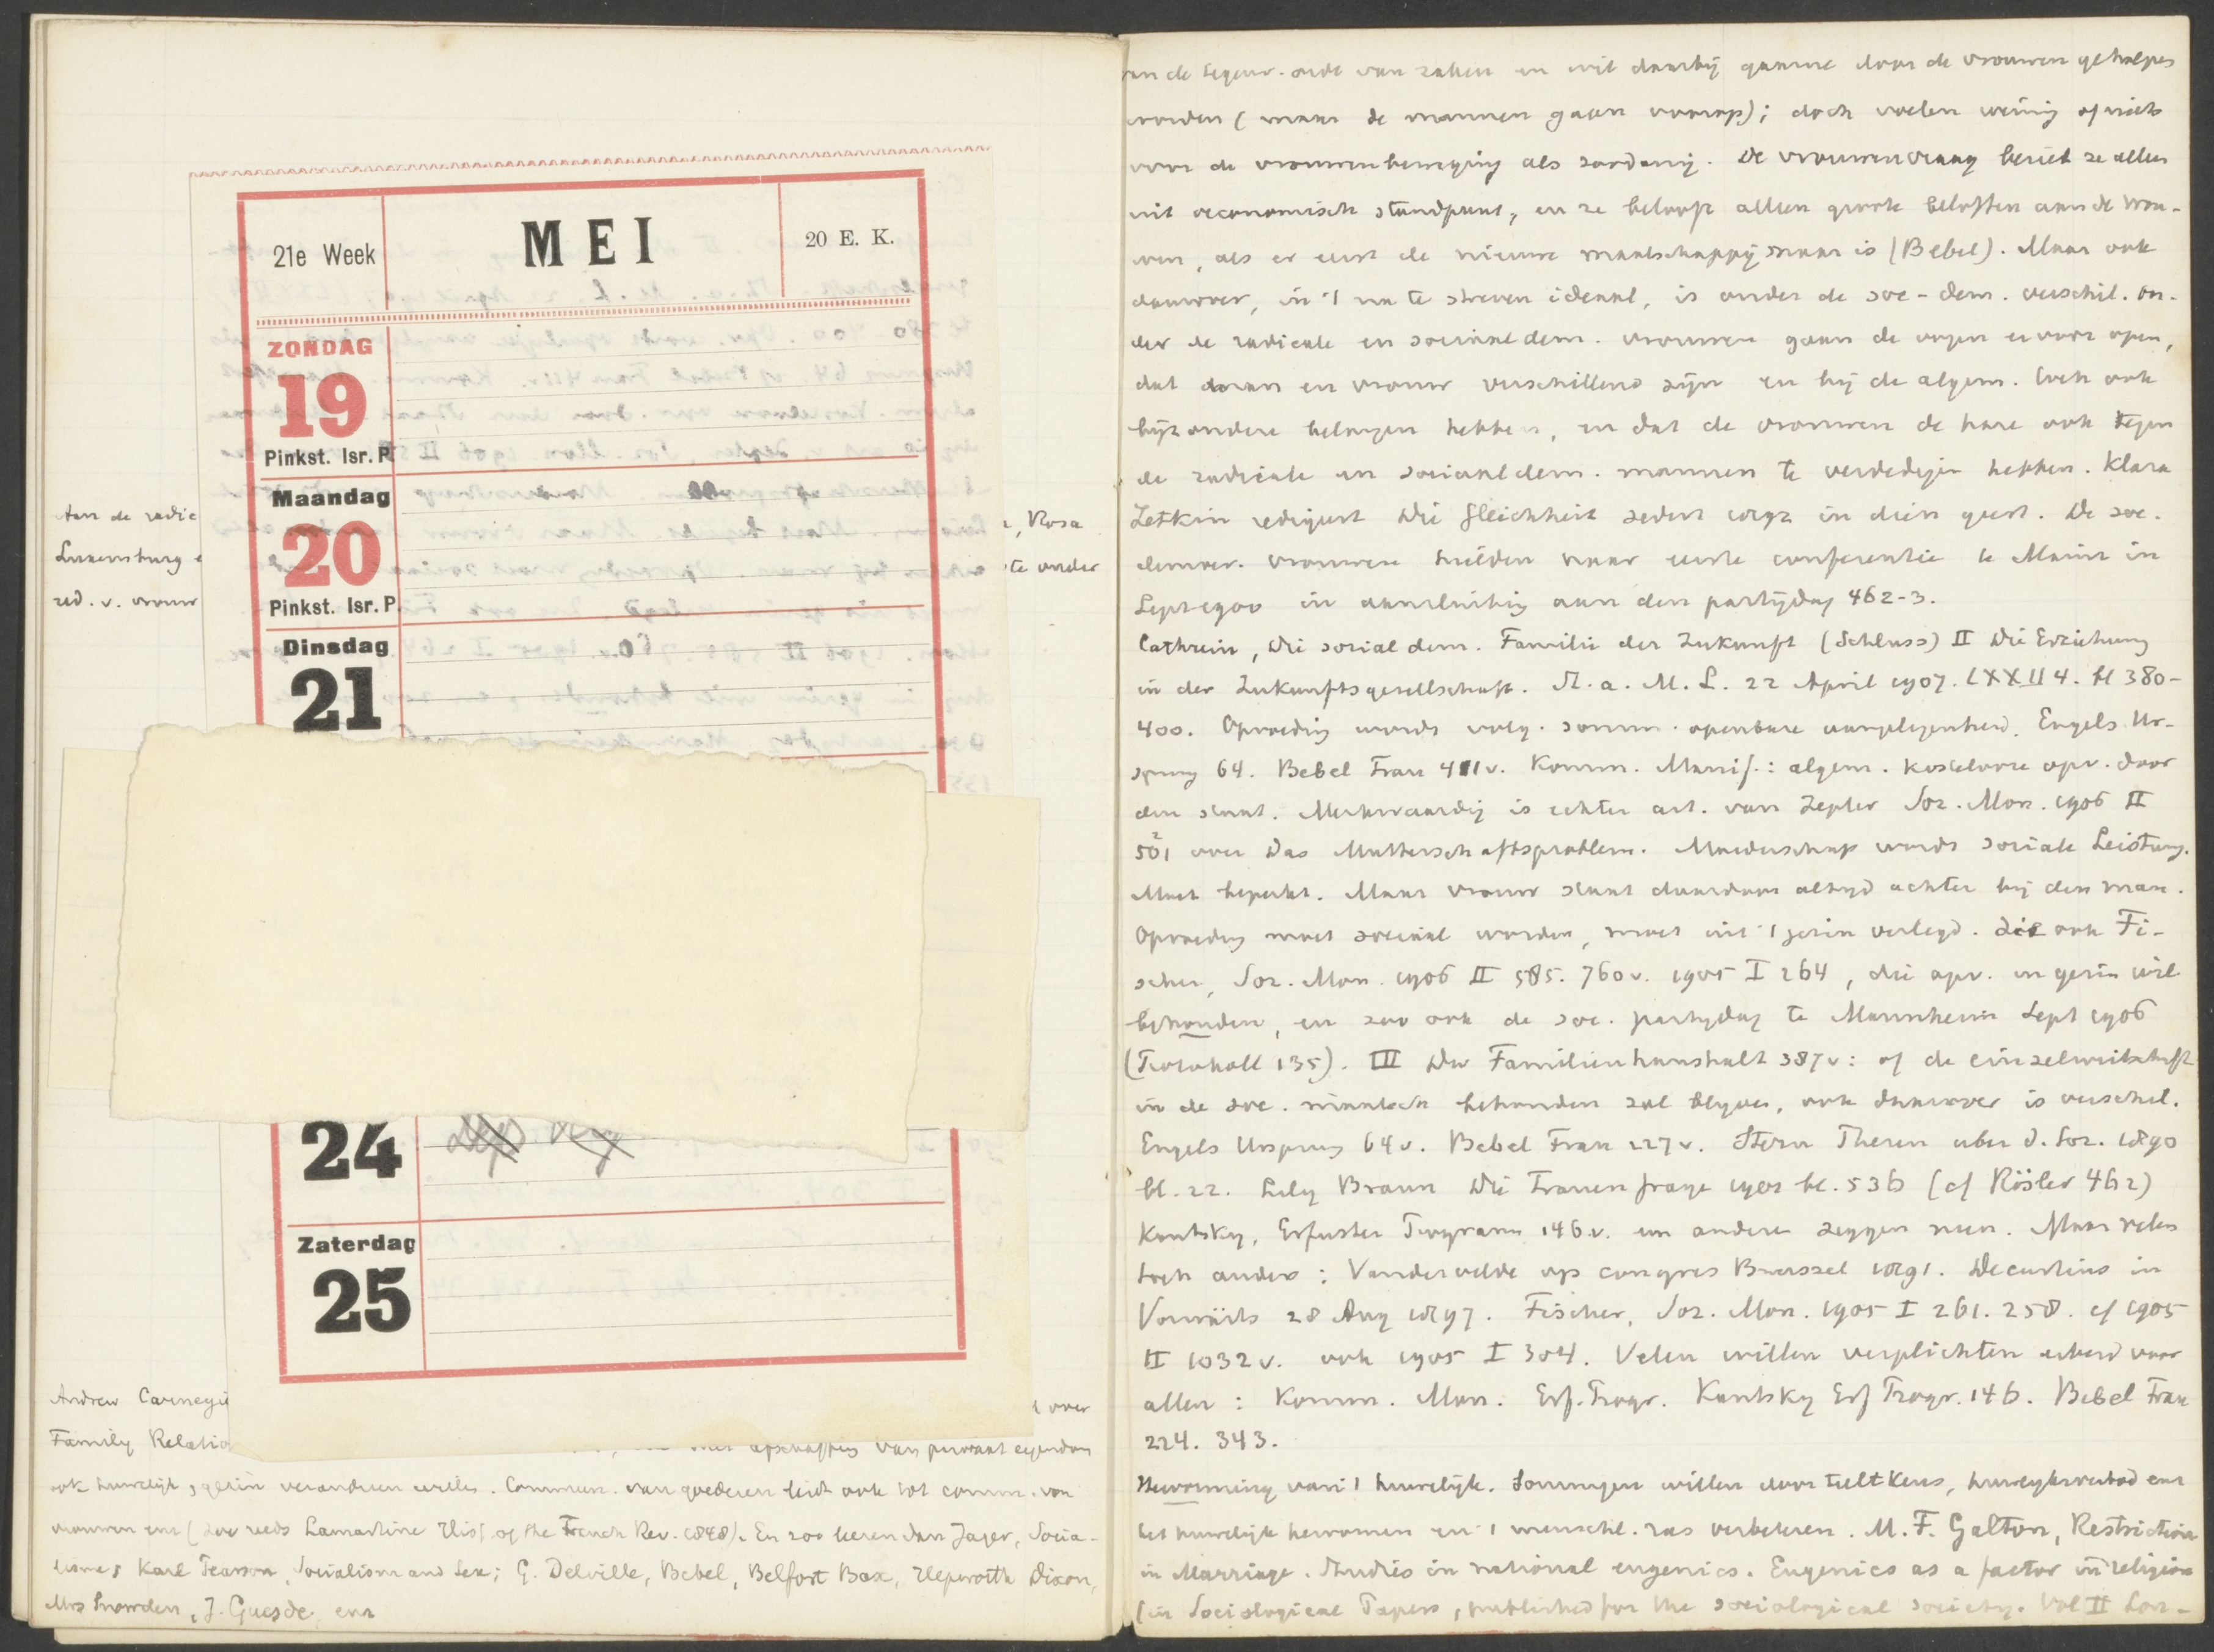 21e Week
MEI
20 E. K.
ZONDAG
19
Pinkst. Isr. P.
Maandag
20
Pinkst. Isr. P.
Dinsdag
21
24
Zaterdag
25
Aan de radic
, Rosa
Luxemburg e
te onder
red. v. vrouw
Andrew Carnegie
over
Family Relatio
met afschaffing van privaat eigendom
ook huwelijk, gezin veranderen willen. Commun. van goederen leidt ook tot comm. van
vrouwen enz (zoo reeds Lamartine Hist. of the French Rev. 1848). En zoo leeren dan Jager, Socia-
lisme; Karl Pearson, Socialism and Sex; G. Delville, Bebel, Belfort Bax, Hepworth Dixon,
Mrs Snowden, J. Guesde, enz
van de tegenw. orde van zaken en wil daarbij gaarne door de vrouwen geholpen
worden (maar de mannen gaan voorop); doch voelen weinig of niets
voor de vrouwenbeweging als zoodanig. De vrouwenvraag beziet ze alleen
uit oeconomisch standpunt, en ze belooft alleen groote beloften aan de vrou-
wen, als er eerst de nieuwe maatschappij maar is (Bebel). Maar ook
daarover, in 't na te streven ideaal, is onder de soc-dem. verschil. On-
der de radicale en sociaaldem. vrouwen gaan de oogen ervoor open,
dat man en vrouw verschillend zijn en bij de algem. toch ook
bijzondere belangen hebben, en dat de vrouwen de hare ook tegen
de radicale en sociaaldem. mannen te verdedigen hebben. Klara
Zetkin redigeert Die Gleichheit sedert 1892 in dien geest. De soc.
democr. vrouwen hielden haar eerste conferentie te Mainz in
Sept 1900 in aansluiting aan den partijdag 462-3.
Cathrein, Die sozialdem. Familie der Zukunft (Schluss) II Die Erziehung
in der Zukunftsgesellschaft. St. a. M. L. 22 April 1907. LXXII 4. bl 380-
400. Opvoeding wordt volg. somm. openbare aangelegenheid. Engels Ur-
sprung 64. Bebel Frau 411v. Komm. Manif.: algem. kostelooze opv. door
den staat. Merkwaardig is echter art. van Zepler Soz. Mon. 1906 II
501 over Das Mutterschaftsproblem. Moederschap wordt sociale Leistung.
Moet beperkt. Maar vrouw staat daardoor altijd achter bij den man.
Opvoeding moet sociaal worden, moet uit 't gezin verlegd. Zie ook Fi-
scher, Soz. Mon. 1906 II 585. 760v. 1905 I 264, die opv. in gezin wil
behouden, en zoo ook de soc. partijdag te Mannheim Sept 1906
(Protokoll 135). III Der Familienhaushalt 387v: of de einzelwirtschaft
in de soc. maatsch behouden zal blijven, ook daarover is verschil.
Engels Ursprung 64v. Bebel Frau 227v. Stern Thesen über d. Soz. 1890
bl. 22. Lily Braun Die Frauenfrage 1901 bl. 536 (cf Rösler 462)
Kautsky, Erfurter Programm 146v. en andere zeggen neen. Maar velen
toch anders: Vandervelde op congres Brussel 1891. Decurtins in
Vorwärts 28 Aug 1897. Fischer, Soz. Mon. 1905 I 261. 258. cf 1905
II 1032v. ook 1905 I 304. Velen willen verplichten arbeid voor
allen: Komm. Man. Erf. Progr. Kautsky Erf Progr. 146. Bebel Frau
224. 343.
Hervorming van 't huwelijk. Sommigen willen door teeltkeus, huwelijksverbod enz
het huwelijk hervormen en 't menschl. ras verbeteren. M. F. Galton, Restriction
in Marriage. Studies in national eugenics. Eugenics as a factor in religion
(in Sociological Papers, published for the sociological society. Vol II Lon-